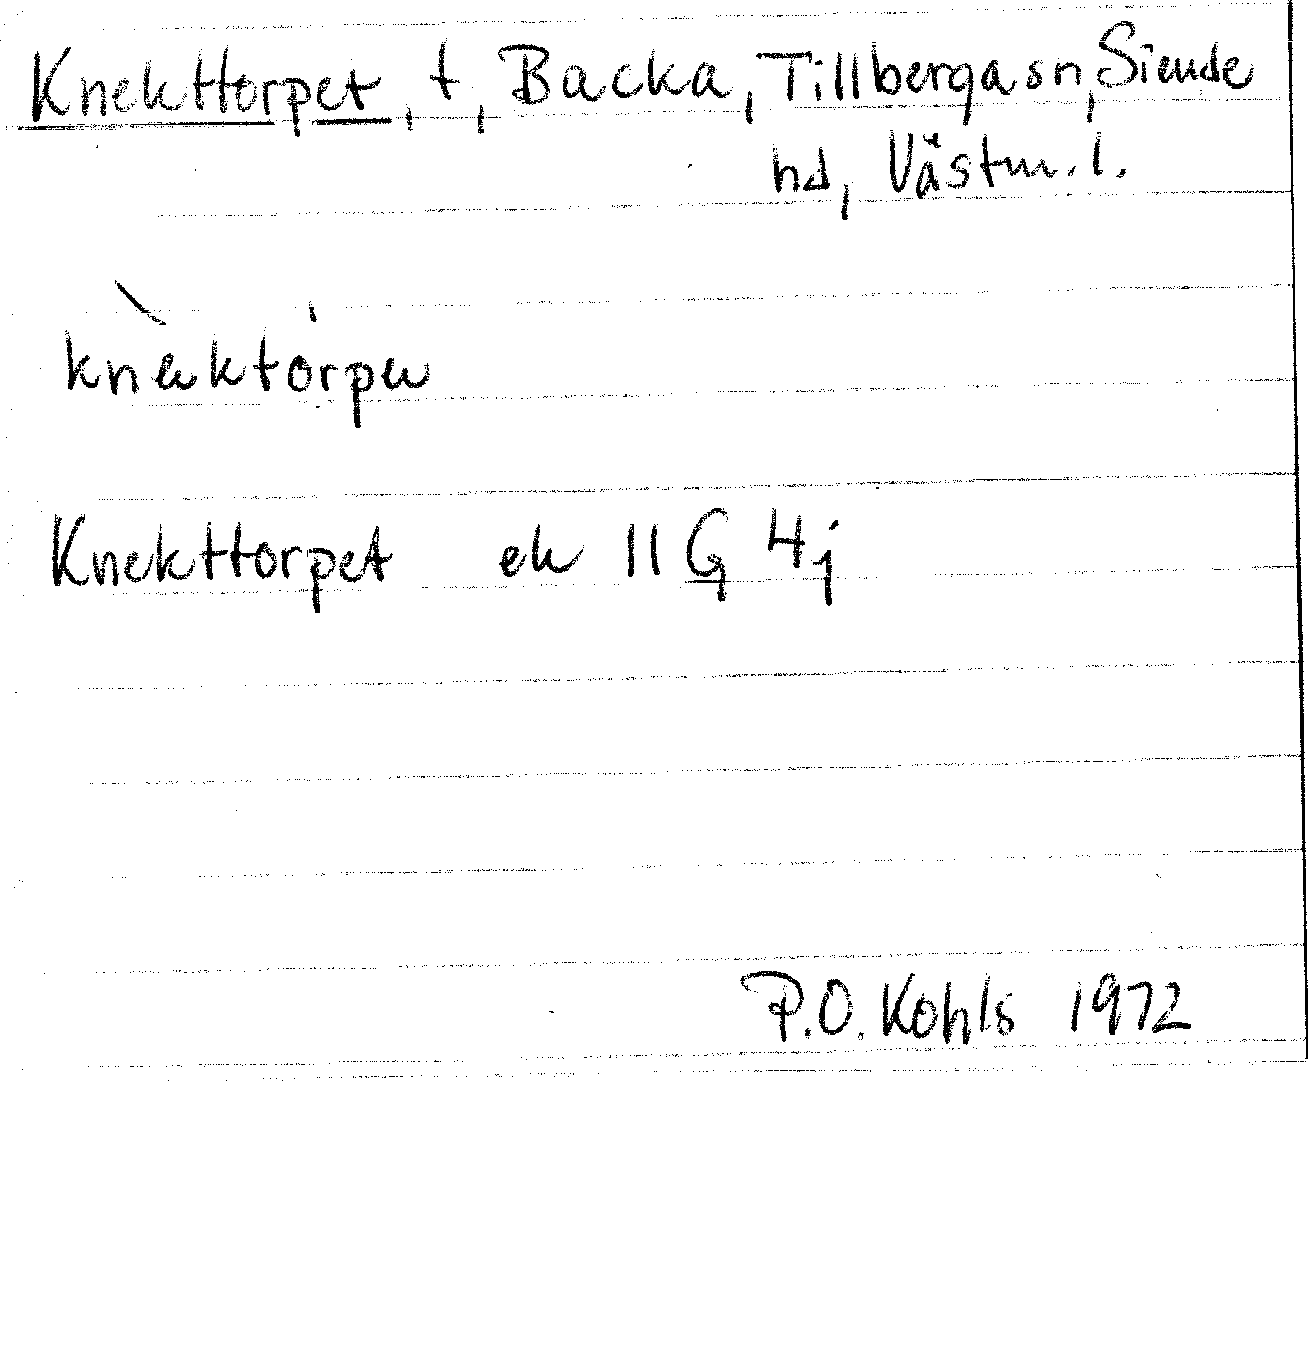 Knekttorpet, t, Backa, Tillberga sn, Siende
hd, Västm. l.
knècktórpe
Knekttorpet ek 11 G 4j
P.O. Kohls 1972